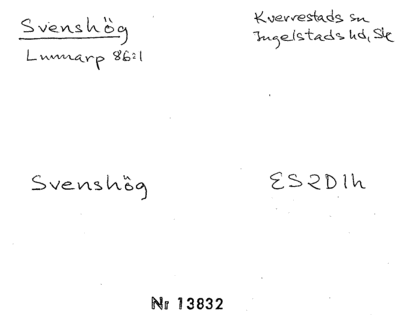 Svenshög
Lunnarp 86:1
Kverrestads sn
Ingelstads hd, Sk
Svenshög
ES2D1h
Nr 13832